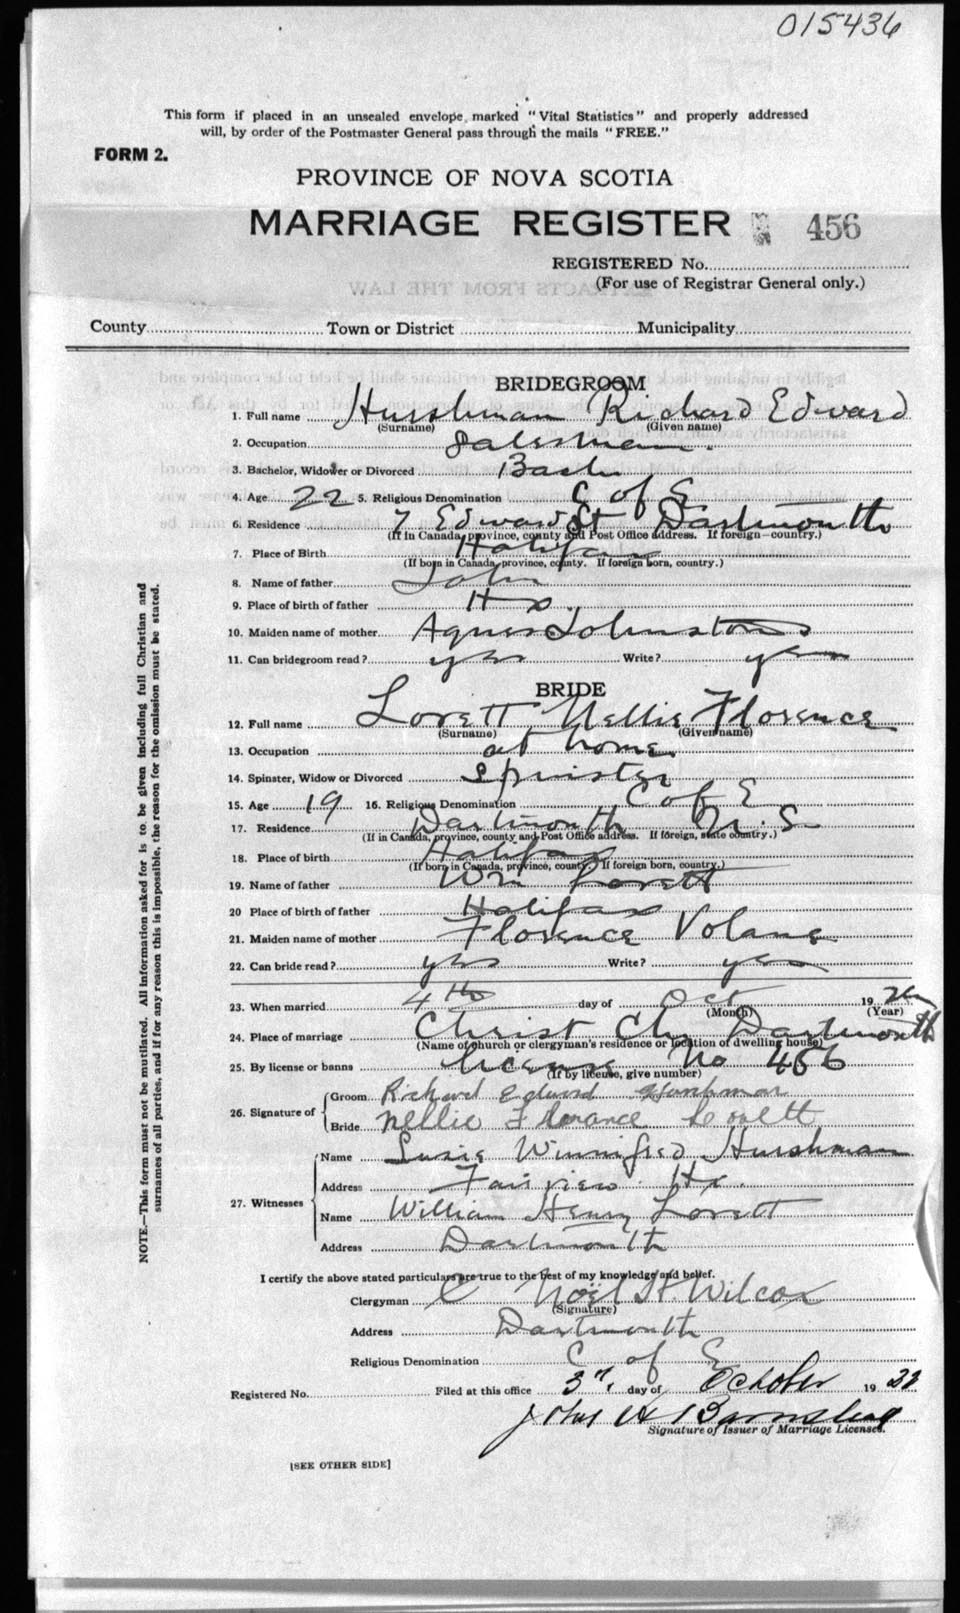 015436
This form if placed in an unsealed envelope marked "Vital Statistics" and properly addressed
will, by order of the Postmaster General pass through the mails "FREE."
FORM 2.
PROVINCE OF NOVA SCOTIA
MARRIAGE REGISTER 456
REGISTERED No.
(For use of Registrar General only.)
County Town or District Municipality
BRIDEGROOM
1. Full name Hurshman Richard Edward
(Surname) (Given name)
2. Occupation Salesman.
3. Bachelor, Widower or Divorced Bach
4. Age 22 5. Religious Denomination C of E
6. Residence 7 Edward St Dartmouth
(If in Canada, province, county and Post Office address. If foreign—country.)
7. Place of Birth Halifax
(If born in Canada, province, county. If foreign born, country.)
8. Name of father John
9. Place of birth of father Hx.
10. Maiden name of mother Agnes Johnston
11. Can bridegroom read? yes Write? yes
BRIDE
12. Full name Lovett Nellie Florence
(Surname) (Given name)
13. Occupation at home
14. Spinster, Widow or Divorced Spinster
15. Age 19 16. Religious Denomination C of E
17. Residence Dartmouth N.S.
(If in Canada, province, county and Post Office address. If foreign, state country.)
18. Place of birth Halifax
(If born in Canada, province, county. If foreign born, country.)
19. Name of father Wm Lovett
20 Place of birth of father Halifax
21. Maiden name of mother Florence Volane
22. Can bride read? yes Write? yes
23. When married 4th day of Oct 19
(Month) (Year)
24. Place of marriage Christ Ch Dartmouth
(Name of church or clergyman's residence or location of dwelling house)
25. By license or banns license No 456
(If by license, give number)
26. Signature of
Groom Richard Edward Hurshman
Bride Nellie Florance Lovett
27. Witnesses
Name Susie Winnifred Hurshman
Address Fairview Hx.
Name William Henry Lovett
Address Dartmouth
I certify the above stated particulars are true to the best of my knowledge and belief.
Clergyman C Noël H. Wilcox
(Signature)
Address Dartmouth
Religious Denomination C of E
Registered No. Filed at this office 3rd day of October 19 22
Signature of Issuer of Marriage Licenses.
[SEE OTHER SIDE]
NOTE.—This form must not be mutilated. All information asked for is to be given including full Christian and
surnames of all parties, and if for any reason this is impossible, the reason for the omission must be stated.